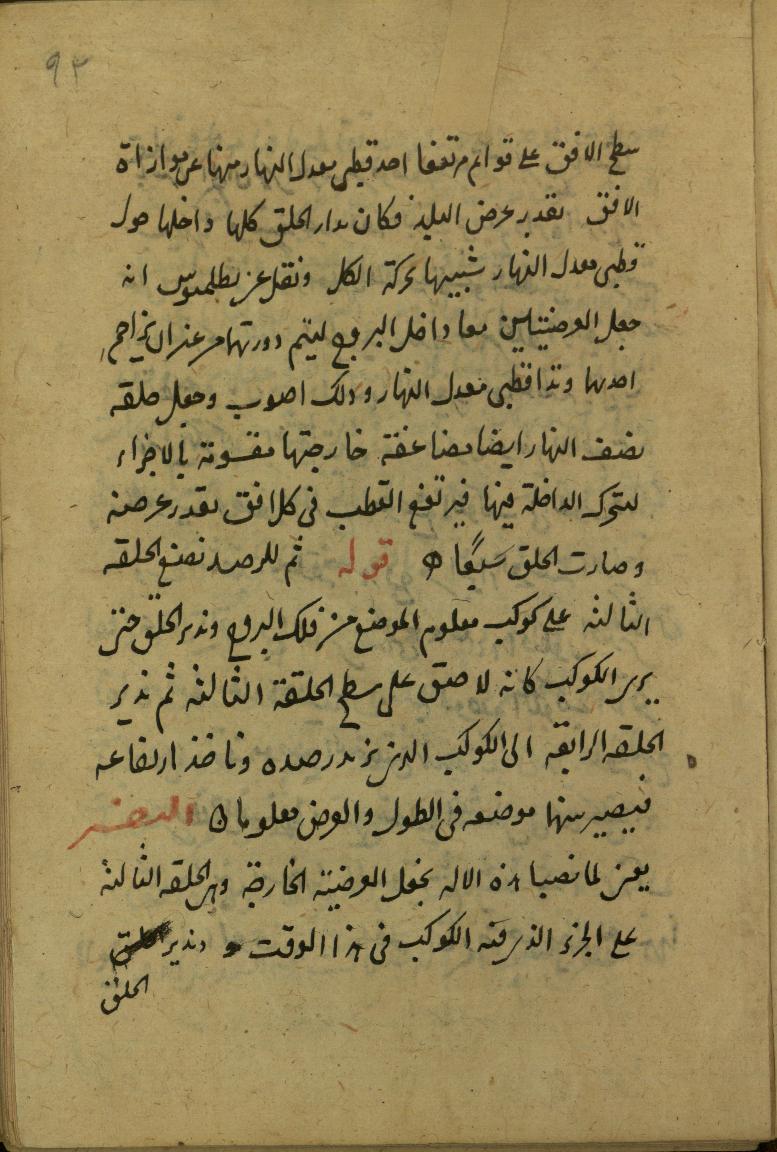 ٩٣
سطح الافق على قوائم مرتفعا احد قطبى معدل النهار منها عن موازاة
الافق بقدر عرض البلد فكان مدار الحلق كلها داخلها حول
قطبى معدل النهار شبيها بحركة الكل ونقل عن بطلميوس انه
جعل العرضيتين معا داخل البروج ليتم دورتهما من غير ان يزاحم
احدهما وتدا قطبى معدل النهار وذلك اصوب وجعل حلقه
نصف النهار ايضا مضاعفة خارجتها مقسومة بالاجزاء
لتتحرك الداخلة فيها فيرتفع القطب فى كل افق بقدر عرضه
وصارت الحلق سبعًا قوله ثم للرصد نصنع الحلقه
الثالثه على كوكب معلوم الموضع من فلك البروج وندير الحلق حتى
يرى الكوكب كانه لاصق على سطح الحلقة الثالثه ثم ندير
الحلقه الرابعه الى الكوكب الذى نريد رصده وناخذ ارتفاعه
فيصير منها موضعه فى الطول والعرض معلوما التفسير
يعنى لما نصبنا هذه الاله نجعل العرضيته الخارجة وهى الحلقه الثالثه
على الجزء الذى فيه الكوكب فى هذا الوقت وندير
الحلق